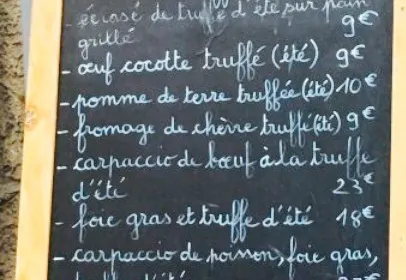 écrasé de truffe d'été sur pain
grillé 9€
- œuf cocotte truffé (été) 9€
- pomme de terre truffée (été) 10€
- fromage de chèvre truffé (été) 9€
- carpaccio de bœuf à la truffe
d'été 23€
- foie gras et truffe d'été 18€
- carpaccio de poisson, foie gras,